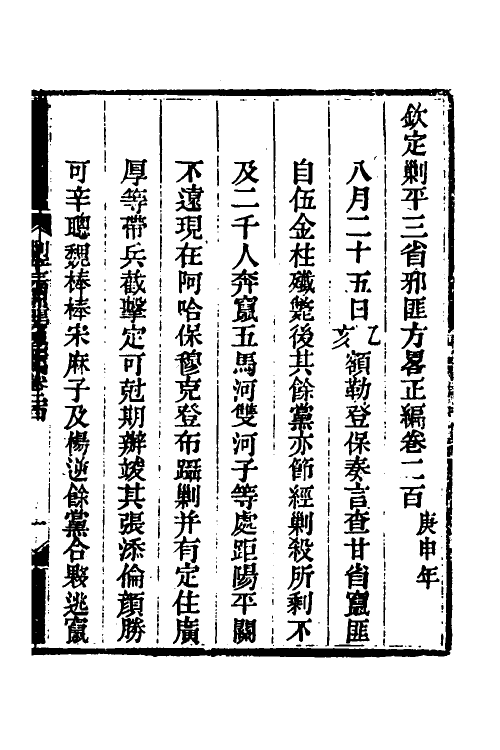 欽定剿平三省邪匪方畧正編卷二百 庚申年
八月二十五日乙亥額勒登保奏言查甘省竄匪
自伍金柱殲斃後其餘黨亦節經剿殺所剩不
及二千人奔竄五馬河雙河子等處距陽平關
不遠現在阿哈保穆克登布躡剿并有定住廣
厚等帶兵截擊定可尅期辦竣其張添倫顏勝
可辛聰魏棒棒宋麻子及楊逆餘黨合夥逃竄